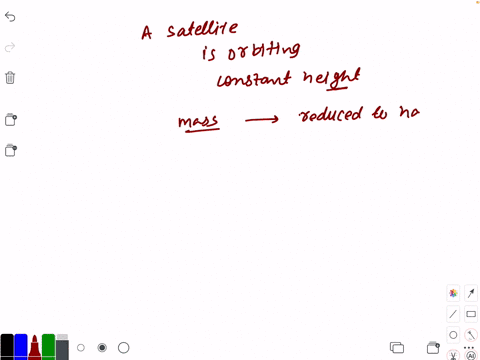 A satellite
is orbiting
constant height
mass → reduced to ha